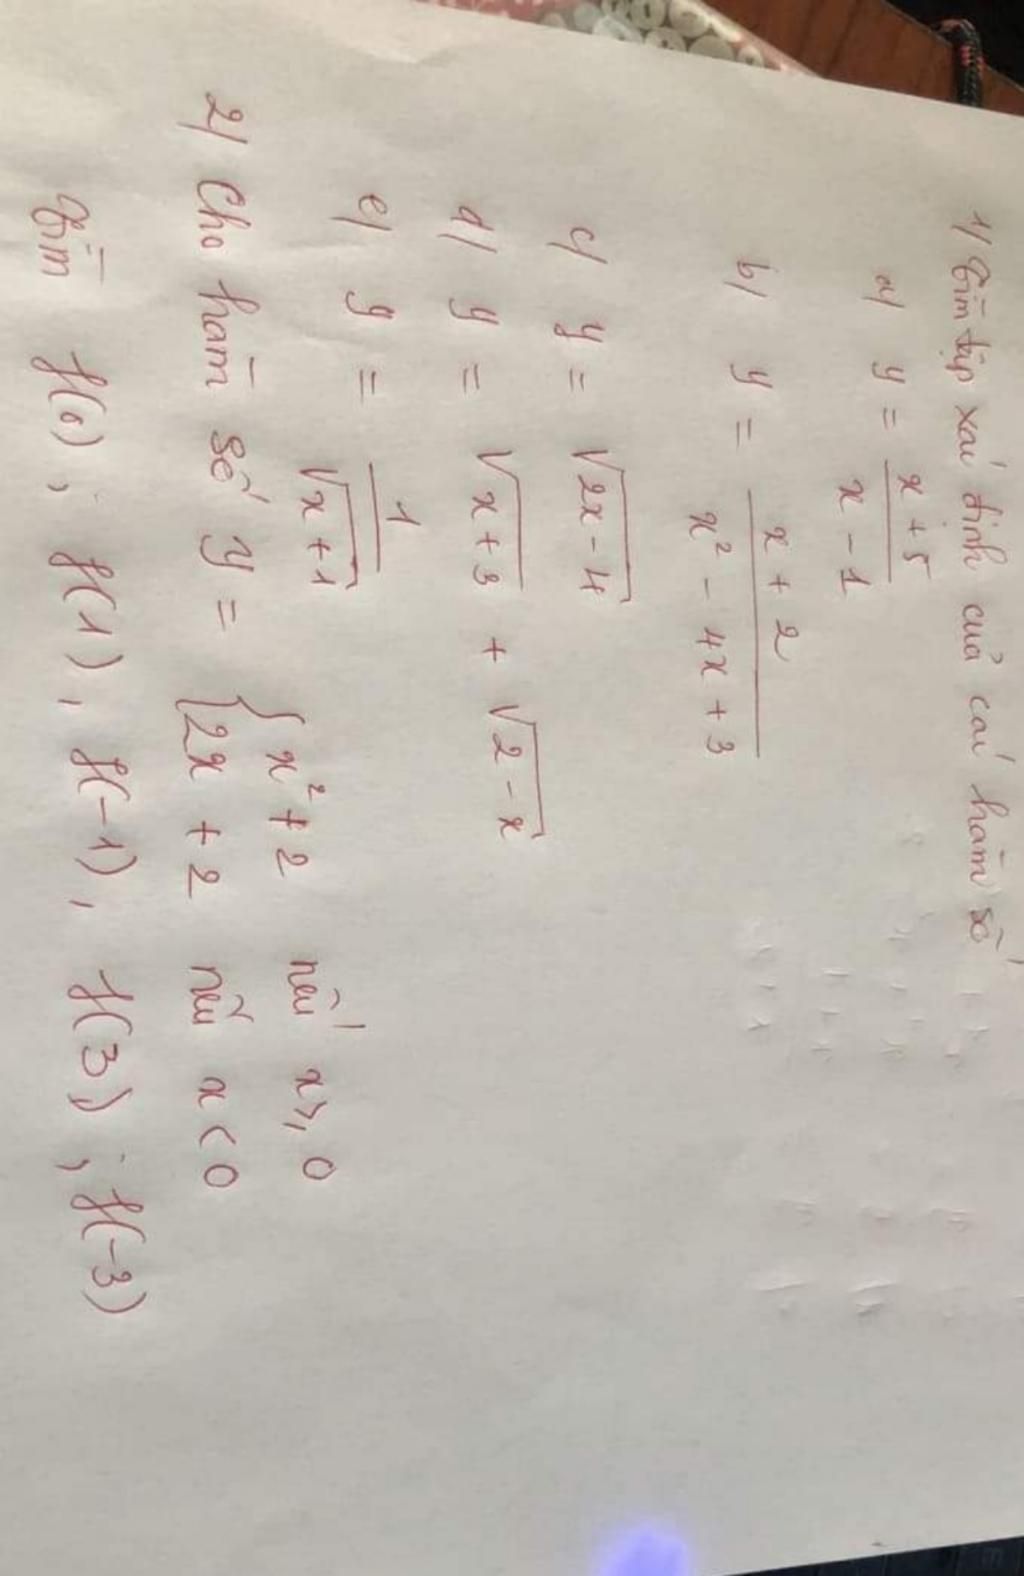 1/ Tìm tập xác định của các hàm số
a) y = (x + 5)/(x - 1)
b) y = (x + 2)/(x² - 4x + 3)
c) y = √(2x - 4)
d) y = √(x + 3) + √(2 - x)
e) y = 1/√(x + 1)
2/ Cho hàm số y = { x² + 2 nếu x ≥ 0
2x + 2 nếu x < 0
Tìm f(0); f(1), f(-1), f(3); f(-3)